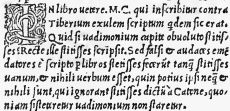 IN libro ueter. M. C. qui inscribitur contra
Tiberium exulem scriptum quidem sic erat,
Quid si uadimonium capite obuoluto stitis-
ses? Recte ille stitisses scripsit. Sed falsi & audaces emẽ
datores è scripto ꝑ libros stetisses fecerũt tanꝗ̃ stitisses
uanum, & nihili uerbum esset, quin potius ipsi neq; &
nihili sunt, qui ignorant stitisses dictũ à Catone, quo-
niam sisteretur uadimonium non staretur.